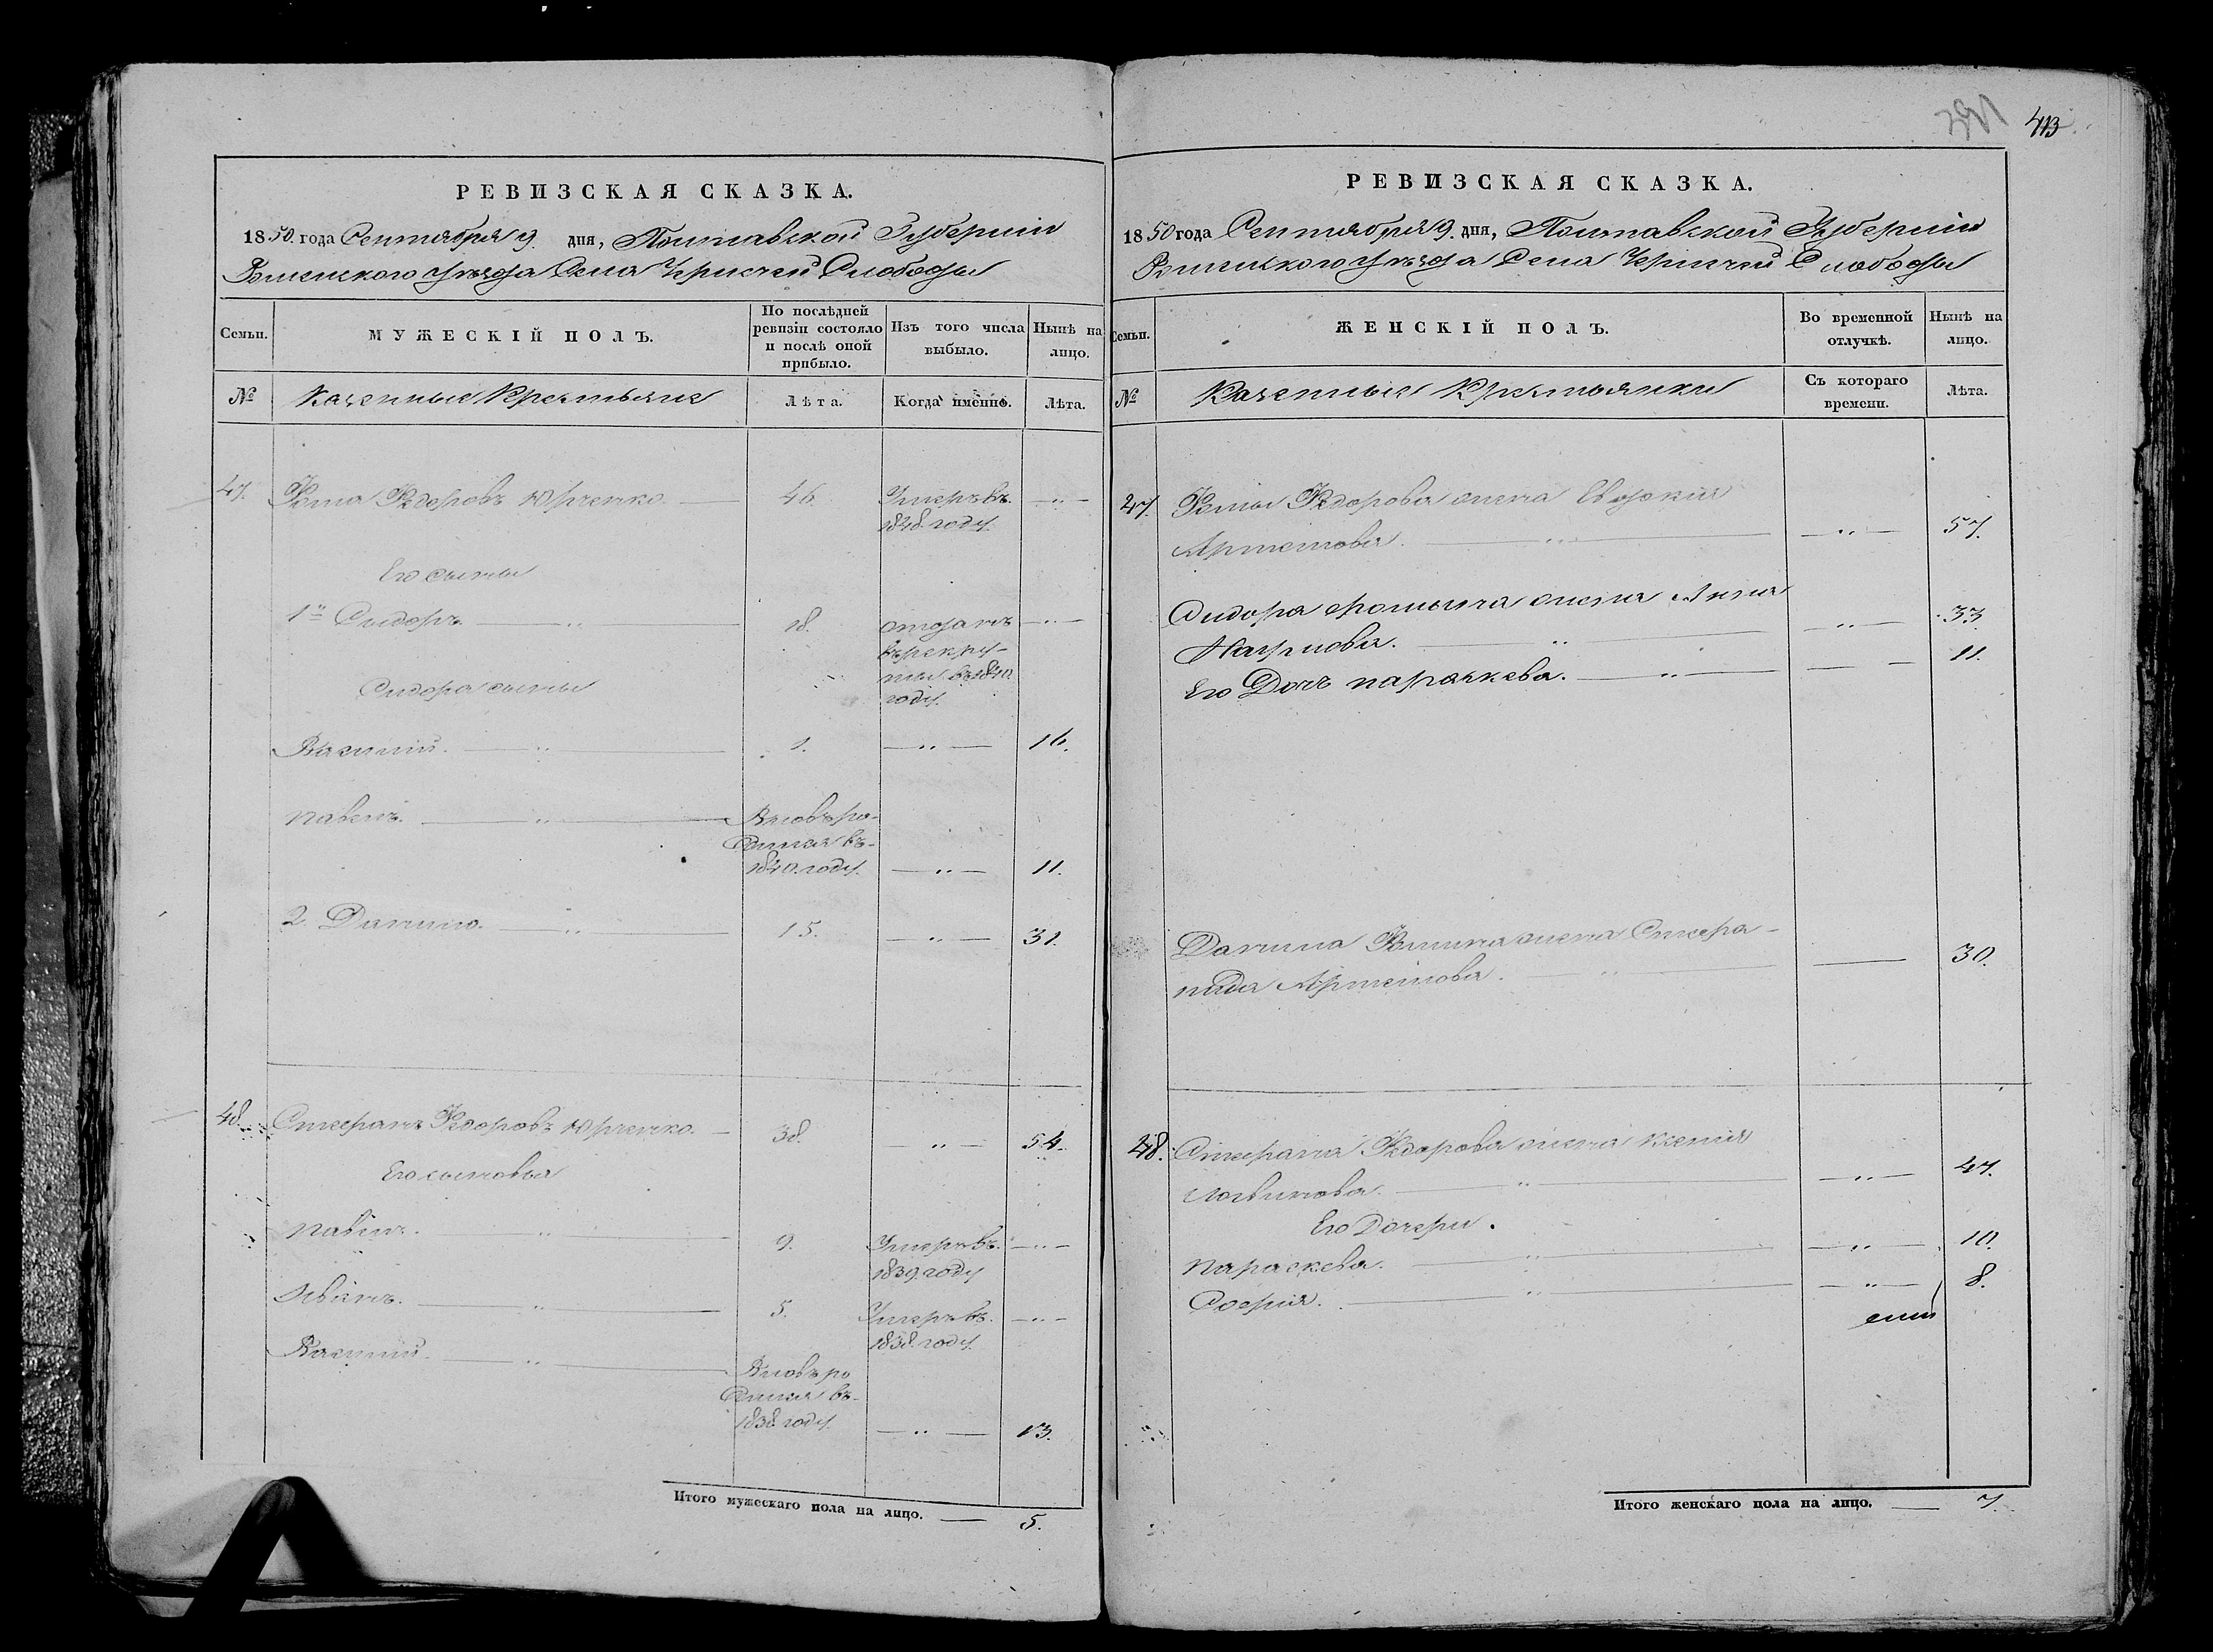 413
РЕВИЗСКАЯ СКАЗКА.
1850. года Сентября 9. дня, Полтавской Губерніи
Роменскаго Уѣзда Села Чернечей Слободы
Семьи.
МУЖЕСКІЙ ПОЛЪ.
По послѣдней ревизіи состояло и послѣ оной прибыло.
Изъ того числа выбыло.
Нынѣ на лицо.
№
Казенные Крестьяне
Лѣта.
Когда именно.
Лѣта.
47. Фома Федоровъ Юрченко. 46. Умеръ въ
1848 году.
Его сыны
1й Сидоръ. 18. отданъ
въ рекру-
ты въ 1840
году.
Сидора сыны
Василий. 1. 16.
Павелъ. Вновь ро-
дился въ
1840. году. 11.
2. Данило. 15. 31.
48. Стефанъ Федоровъ Юрченко. 38. 54.
Его сыновья
Павелъ. 9. Умеръ въ
1839. году
Иванъ. 5. Умеръ въ
1838 году.
Василий. Вновь ро
дился въ
1838 году. 13.
Итого мужескаго пола на лицо. 5.
РЕВИЗСКАЯ СКАЗКА.
1850 года Сентября 9. дня, Полтавской Губерніи
Роменскаго Уѣзда Села Чернечей Слободы
Семьи.
ЖЕНСКІЙ ПОЛЪ.
Во временной отлучкѣ.
Нынѣ на лицо.
№
Казенныя Крестьянки
Съ котораго времени.
Лѣта.
47. Фомы Федорова жена Евдокия
Артемова. 57.
Сидора Фомина жена Анна
Наумова. 33
Его Дочь параскева. 11.
Данила Фомина жена Стефа-
нида Артемова. 30.
48. Стефана Федорова жена Ксения
Логвинова. 47.
Его Дочери.
Параскева. 10.
София. 8.
Итого женскаго пола на лицо. 7.